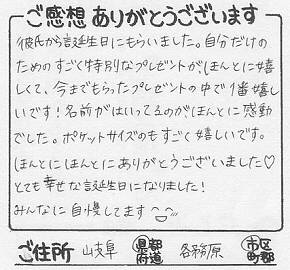 ご感想ありがとうございます
彼氏から誕生日にもらいました。自分だけの
ためのすごく特別なプレゼントが、ほんとに嬉
しくて、今までもらったプレゼントの中で1番嬉し
いです！名前がはいってるのがほんとに感動
でした。ポケットサイズのもすごく嬉しいです。
ほんとにほんとにありがとうございました♡
とても幸せな誕生日になりました！
みんなに自慢してます
ご住所 岐阜 県都府道 各務原 市区町郡